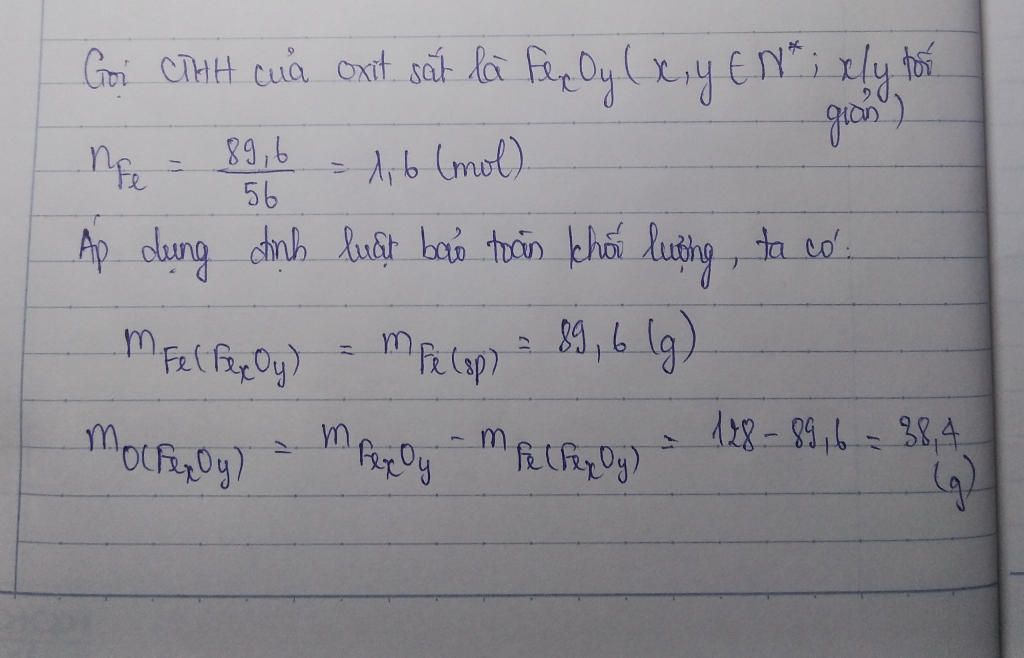 Gọi CTHH của oxit sắt là FeₓOy ( x, y ∈ N*; x/y tối
giản)
nFe = 89,6/56 = 1,6 (mol)
Áp dụng định luật bảo toàn khối lượng, ta có:
mFe(FeₓOy) = mFe(sp) = 89,6 (g)
mO(FeₓOy) = mFeₓOy - mFe(FeₓOy) = 128 - 89,6 = 38,4
(g)